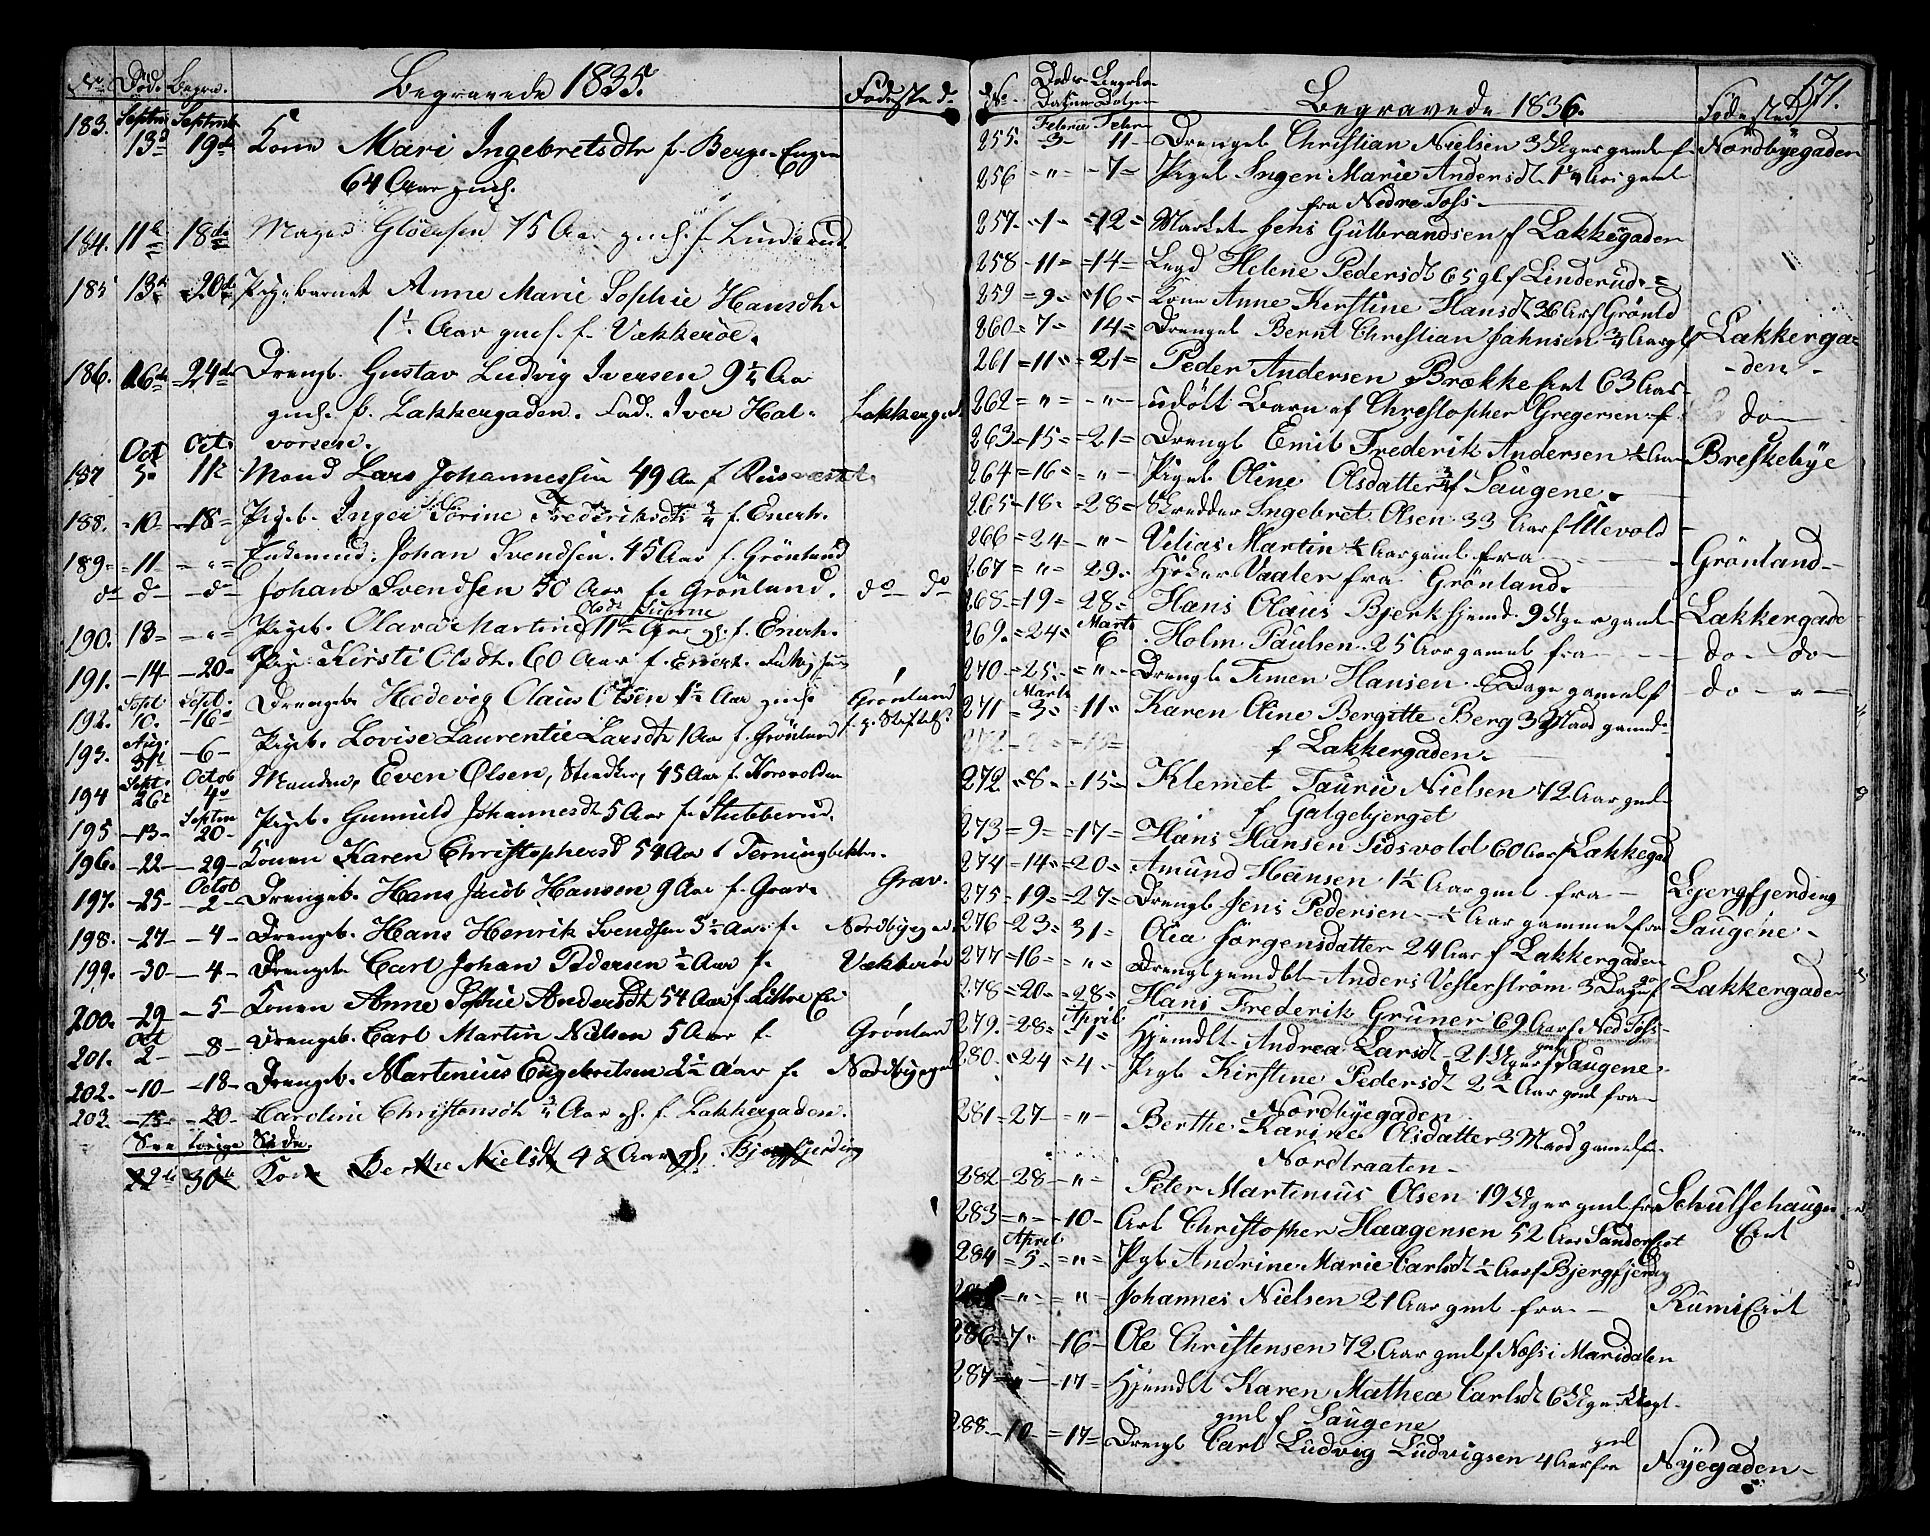 No. Död. Begra. Begravede 1835. Födested.
183. Septr Septembr
13d 19de Kone Mari Ingebretsdtr f. Bergs-Engen
64 Aar gml.
184. 11te 18de Gloersen 75 Aar gml. f. Linderud
185 13de 20de Pigebarnet Anne Marie Sophie Hansdtr
1½ Aar gml. f. Vækkeröe.
186. 16de 24de Drengb. Gustav Ludvig Iversen 9¼ Aar
gml. f. Lakkergaden. Fad. Iver Hal- Lakkergad.
vorsen.
Oct Oct.
187 5. 11te Mand Lars Johannessen 49 Aar f.
188. -10- -18- Pigeb. Inger Sörine Frederiksdtr ¾ f. Enerh.
189 -11- -"- Johan Svendsen. 45 Aar f. Grönland
do d- -d- Johan Svendsen 50 Aar f. Grönland. do do
Olsdt
190. 13- -"- Pigeb. Olava Martine 11 Aar gl. f. Enerh.
191. -14- -20- Pige Kirsti Olsdtr. 60 Aar f. Enerh.
Sept. Sept.
192. 10. -16- Drengeb. Hedevig Olaus Olsen 1½ Aar gml Grönland
Aug.
193. 31te -6- Pigeb. Lovise Laurentie Larsdtr 1 Aar f. Grönland
Septr. Octob
194 26 4de Manden, Even Olsen, 45 Aar f. Korsvolden
Septem
195 -13- 20- Pigeb. Gunnild Johannesdt 5 Aar f. Stubberud.
196. -22- -29- Konen Karen Christophersd 54 Aar f Terningbekken.
Octob
197. -25- -2- Drengeb. Hans Jacob Hansen 9 Aar f. Grav. Grav.
198. -27- -4- Drengeb. Hans Henrik Svendsen 3½ Aar f. Nordbyegad.
199. -30- -4- Drengeb. Carl Johan Pedersen ½ Aar f. Vækkeröe
200. -29- -5- Konen Anne Sophie Andersdt 54 Aar f.
Oct
201. 2- -8- Drengeb. Carl Martin Nilsen 5 Aar f. Grönland
202. -10- -18- Drengeb. Martinius Engebretsen 2½ Aar f. Nordbyegad
203. -15- -20- Caroline Christensdt ¾ Aar gl. f. Lakkergaden.
See forige Side.
22de 30te Kone Berthe Nielsdt 48 Aar gl. Bjergfjerding
171.
No. Döds-Datum Begrav-Datum Begravede 1836. Födested
Februa Febr
255. -3- 11- Drengeb Christian Nielsen 3 Uger gamle f. Nordbyegaden
256 -"- -7- Pigeb. Inger Marie Andersdt 1¼ Aar gml
fra Nedre Foss
257. -1- -12- Jens Gulbrandsen f Lakkegaden
258 -11- -14- Legd Helene Pedersdt 65 gl f Linderud.
259 -9- -16- Kone Anne Kerstine Hansdt 36 Aar f Grönld
260 -7- 14- Drengeb Bernt Christian Jahnsen ¾ Aar gl f Lakkerga-
261 -11- -21- Peder Andersen Brække Ent 63 Aar- -den-
262 -"- -"- udöbt Barn af Christopher Gregersen f do
263 -15- -21- Drengb Emil Frederik Andersen ¼ Aar Breskebye
264 -16- -"- Pigeb Oline Olsdatter ¾ f Saugene.
265 -18- -28- Skredder Ingebret Olsen 33 Aar f Ullevold
266 -24- -"- Vilias Martin ¼ Aar gamle fra Grönland
267 -"- 29- Höker Vaaler fra Grönland.
268- -19- 28- Hans Olaus Bjerk hjemd. 9 Uger gaml Lakkergade
Marts
269. -24- 6 Holm Paulsen 25 Aar gamel fra do- do-
270 -25- -"- Drengb Timen Hansen 8 Dage gamel f do - " -
Marts
271 -3- -11- Karen Oline Bergitte Berg 3 Maad gamel-
f Lakkergaden.
272 -8- -15- Klemet Taurie Nielsen 72 Aar gml
f Galgebjerget
273 -9- -17- Hans Hansen Eidsvold 60 Aar f Lakkegad
274 -14- -20- Amund Hansen 1½ Aar gml fra Bjergfjerding
275 -19- -27- Drengb Jens Pedersen ½ Aar gammel fra Saugene.
276 -23- 31- Olea Jörgensdatter 24 Aar f Lakkergaden
277 -16- -"- Drengb hjemdbt. Anders Vesterström 3 Dage f Lakkergaden
278 -20- -28- Hans Frederik Gruner 69 Aar f Ned Foss
April
279. -28- -1- Hjemdt. Andrea Larsdt 21 Uger gml f Saugene.
280. -24 -4- Pigb Kirstine Pedersdt 2½ Aar gml fra
Nordbyegaden
281 -27- "- Berthe Karine Olsdatter 3 Maad gamel fra
Nordtraaten
282 -28 -"- Peter Martinius Olsen 19 Uger gml fra Schulsehaugen
283 -"- -10- Arb Christopher Haagensen 52 Aar Sander Eiet Eiet
April
284 -5- -"- Pigb Andrine Marie Carlsdt ½ Aar f Bjergfjerding
-"- -"- Johannes Nielsen 21 Aar gml fra Rumi Eiet
286 -7- -16- Ole Christensen 72 Aar gml f Næss i Maridalen
287 -"- -17- Hjemdt Karen Mathea Carlsdt 6 Uger
gml f Saugene
288 -10- -17- Drengb Carl Ludvig Ludvigsen 4 Aar gml fra Nyegaden-